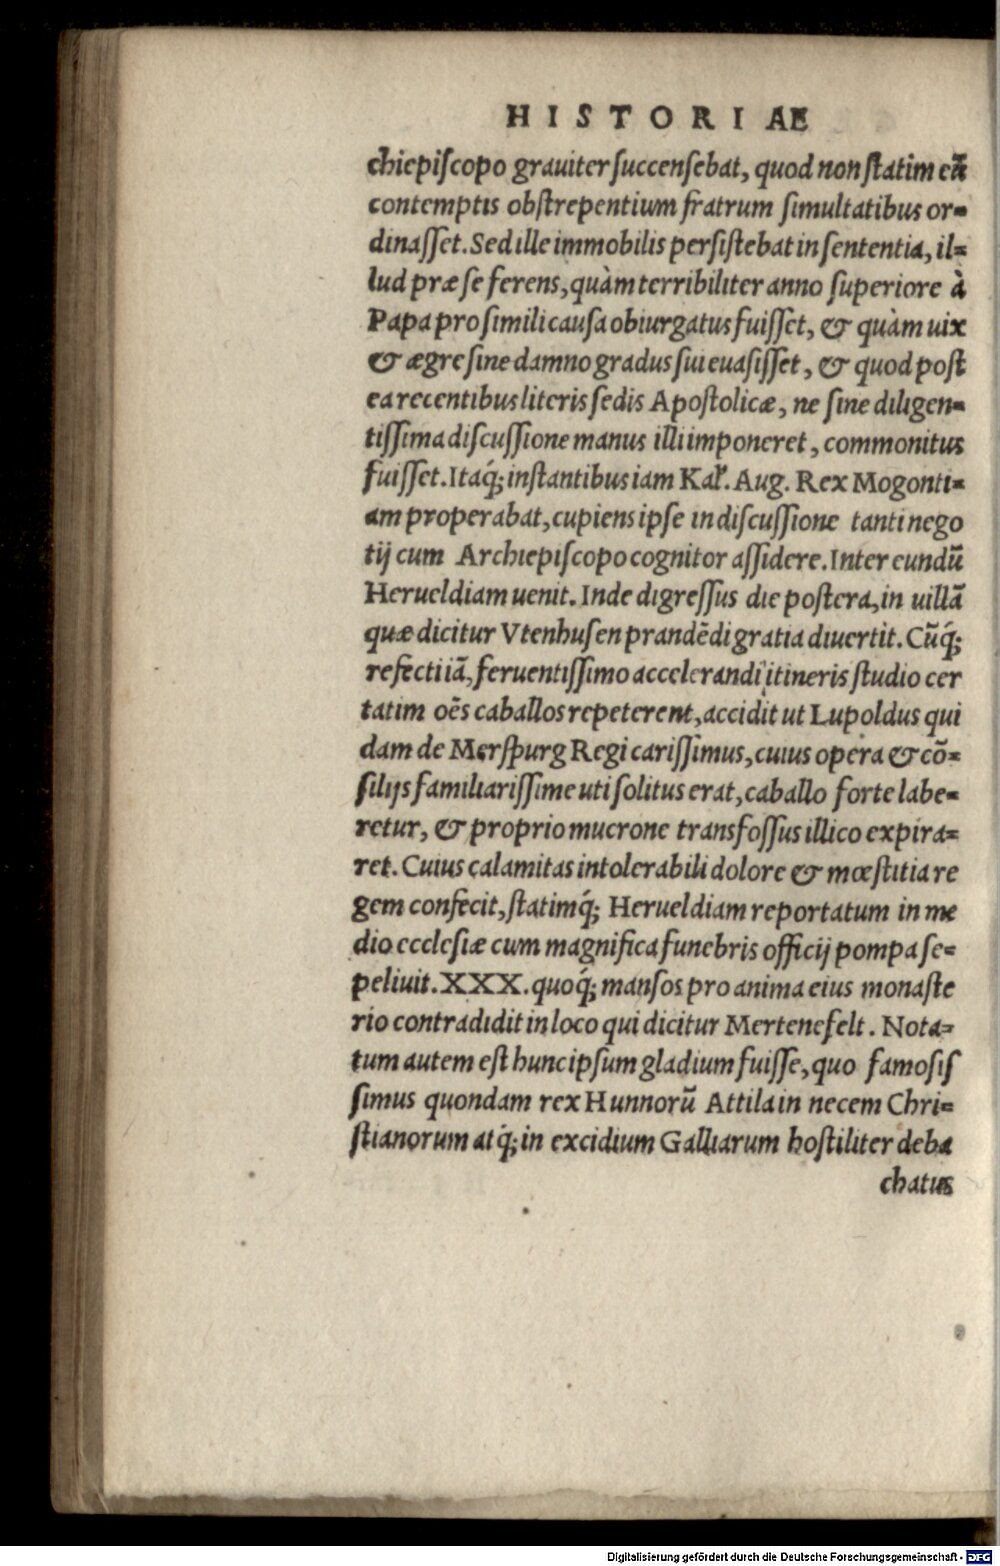 HISTORIAE
chiepiscopo grauiter succensebat, quod non statim eũ
contemptis obstrepentium fratrum simultatibus or-
dinasset. Sed ille immobilis persistebat in sententia, il-
lud præ se ferens, quàm terribiliter anno superiore à
Papa pro simili causa obiurgatus fuisset, & quàm uix
& ægre sine damno gradus sui euasisset, & quod post
ea recentibus literis sedis Apostolicæ, ne sine diligen-
tissima discussione manus illi imponeret, commonitus
fuisset. Itaq́; instantibus iam Kal̃. Aug. Rex Mogonti-
am properabat, cupiens ipse in discussione tanti nego
tij cum Archiepiscopo cognitor assidere. Inter eundũ
Herueldiam uenit. Inde digressus die postera, in uillã
quæ dicitur Vtenhusen prandẽdi gratia diuertit. Cũq́;
refecti iã, feruentissimo accelerandi itineris studio cer
tatim oẽs caballos repeterent, accidit ut Lupoldus qui
dam de Merspurg Regi carissimus, cuius opera & cõ-
silijs familiarissime uti solitus erat, caballo forte labe-
retur, & proprio mucrone transfossus illico expira-
ret. Cuius calamitas intolerabili dolore & mœstitia re
gem confecit, statimq́; Herueldiam reportatum in me
dio ecclesiæ cum magnifica funebris officij pompa se-
peliuit. XXX. quoq́; mansos pro anima eius monaste
rio contradidit in loco qui dicitur Mertenefelt. Nota-
tum autem est hunc ipsum gladium fuisse, quo famosis
simus quondam rex Hunnorũ Attila in necem Chri-
stianorum atq́; in excidium Galliarum hostiliter deba
chatus
Digitalisierung gefördert durch die Deutsche Forschungsgemeinschaft - DFG